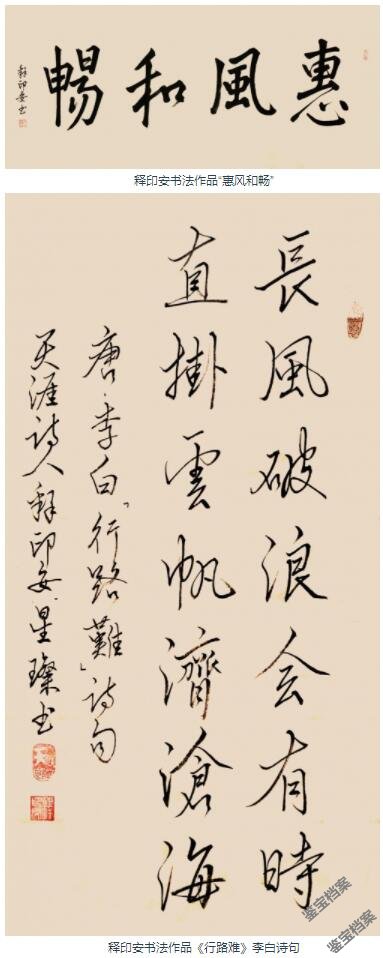 惠風和暢
释印安书
释印安书法作品“惠风和畅”
長風破浪会有時
直掛雲帆濟滄海
唐·李白「行路難」诗句
天涯诗人释印安·星璨书
鉴宝档案
鉴宝档案
释印安书法作品《行路难》李白诗句